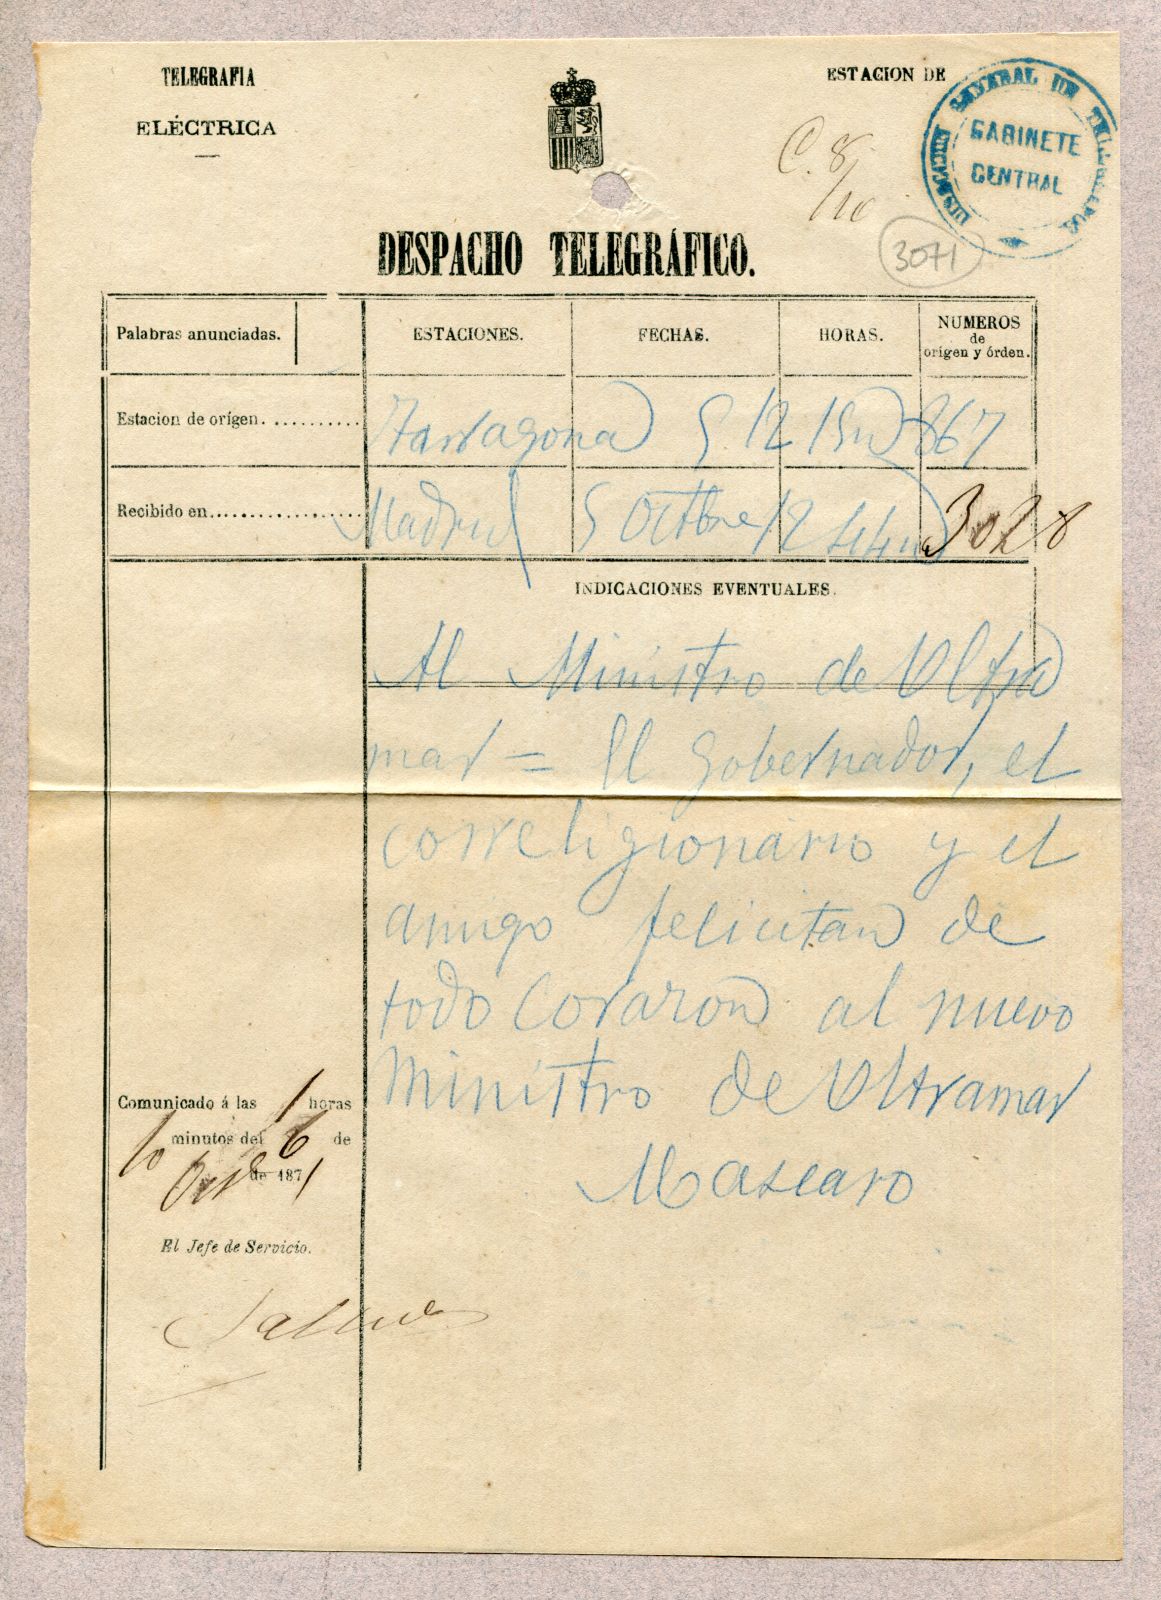 TELEGRAFIA
ELÉCTRICA
ESTACION DE
DIRECCION GENERAL DE TELEGRAFOS
GABINETE
CENTRAL
C. 8/10
3071
DESPACHO TELEGRÁFICO.
Palabras anunciadas.
ESTACIONES.
FECHAS.
HORAS.
NUMEROS
de
orígen y órden.
Estacion de orígen.
Tarragona 5 12 15n 867
Recibido en
Madrid 5 Octbre 12 44n 3028
INDICACIONES EVENTUALES.
Al Ministro de Ultra
mar = El Gobernador, el
correligionario y el
amigo felicitan de
todo Corazon al nuevo
Ministro de Ultramar
Mascaro
Comunicado á las 1 horas
10 minutos del 6 de
Oct de 1871
El Jefe de Servicio.